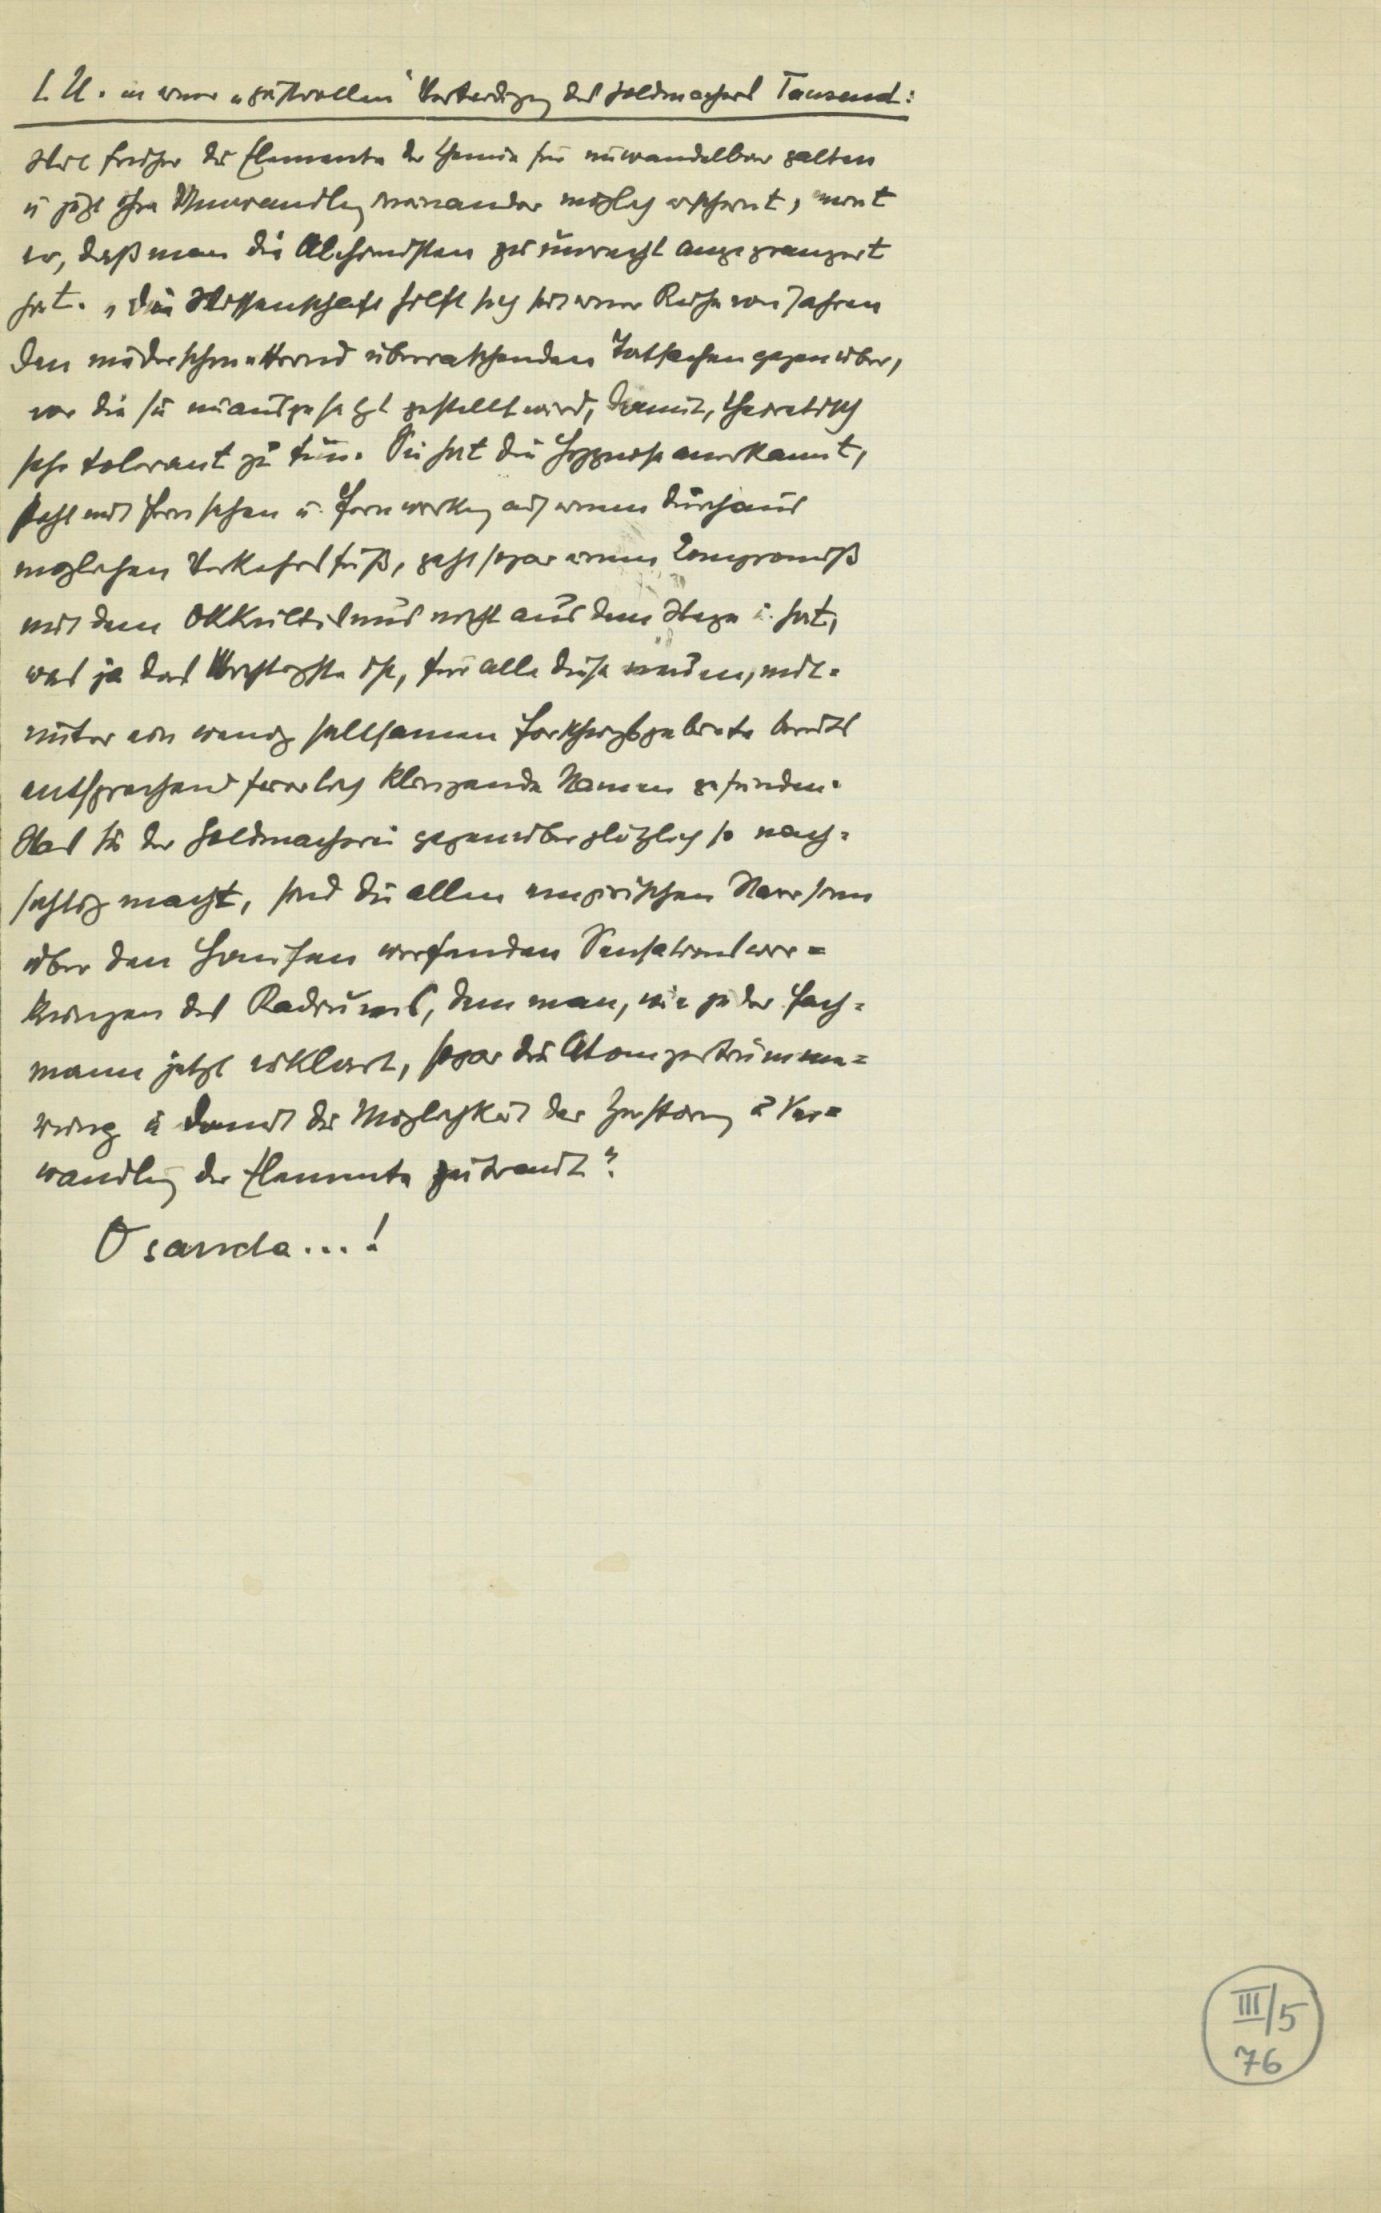 L. U. in einer „geistvollen“ Verteidigung des Goldmachers Tausend:
Weil früher die Elemente der Chemie für unwandelbar galten
u jetzt ihre Umwandlung ineinander möglich erscheint, meint
er, daß man die Alchimisten zu unrecht angeprangert
hat. „Die Wissenschaft hilft sich seit einer Reihe von Jahren
den niederschmetternd überraschenden Tatsachen gegenüber,
vor die sie unausgesetzt gestellt wird, damit, theoretisch
sehr tolerant zu tun. Sie hat die Hypnose anerkannt,
steht mit Fernsehen u. Fernwirkung auf einem durchaus
möglichen Verkehrsfuß, geht sogar einem Kompromiß
mit dem Okkultismus nicht aus dem Wege u. hat,
was ja das Wichtigste ist, für alle diese neuen, mit-
unter ein wenig seltsamen Forschungsgebiete bereits
entsprechend feierlich klingende Namen gefunden.
Was sie der Goldmacherei gegenüber plötzlich so nach-
sichtig macht, sind die allen empirischen Starrsinn
über den Haufen werfenden Sensationswir-
kungen des Radiums, dem man, wie jeder Fach-
mann jetzt erklärt, sogar die Atomzertrümme-
rung u damit die Möglichkeit der Zerstörung u Ver-
wandlung der Elemente zutraut“.
O sancta...!
III/5
76